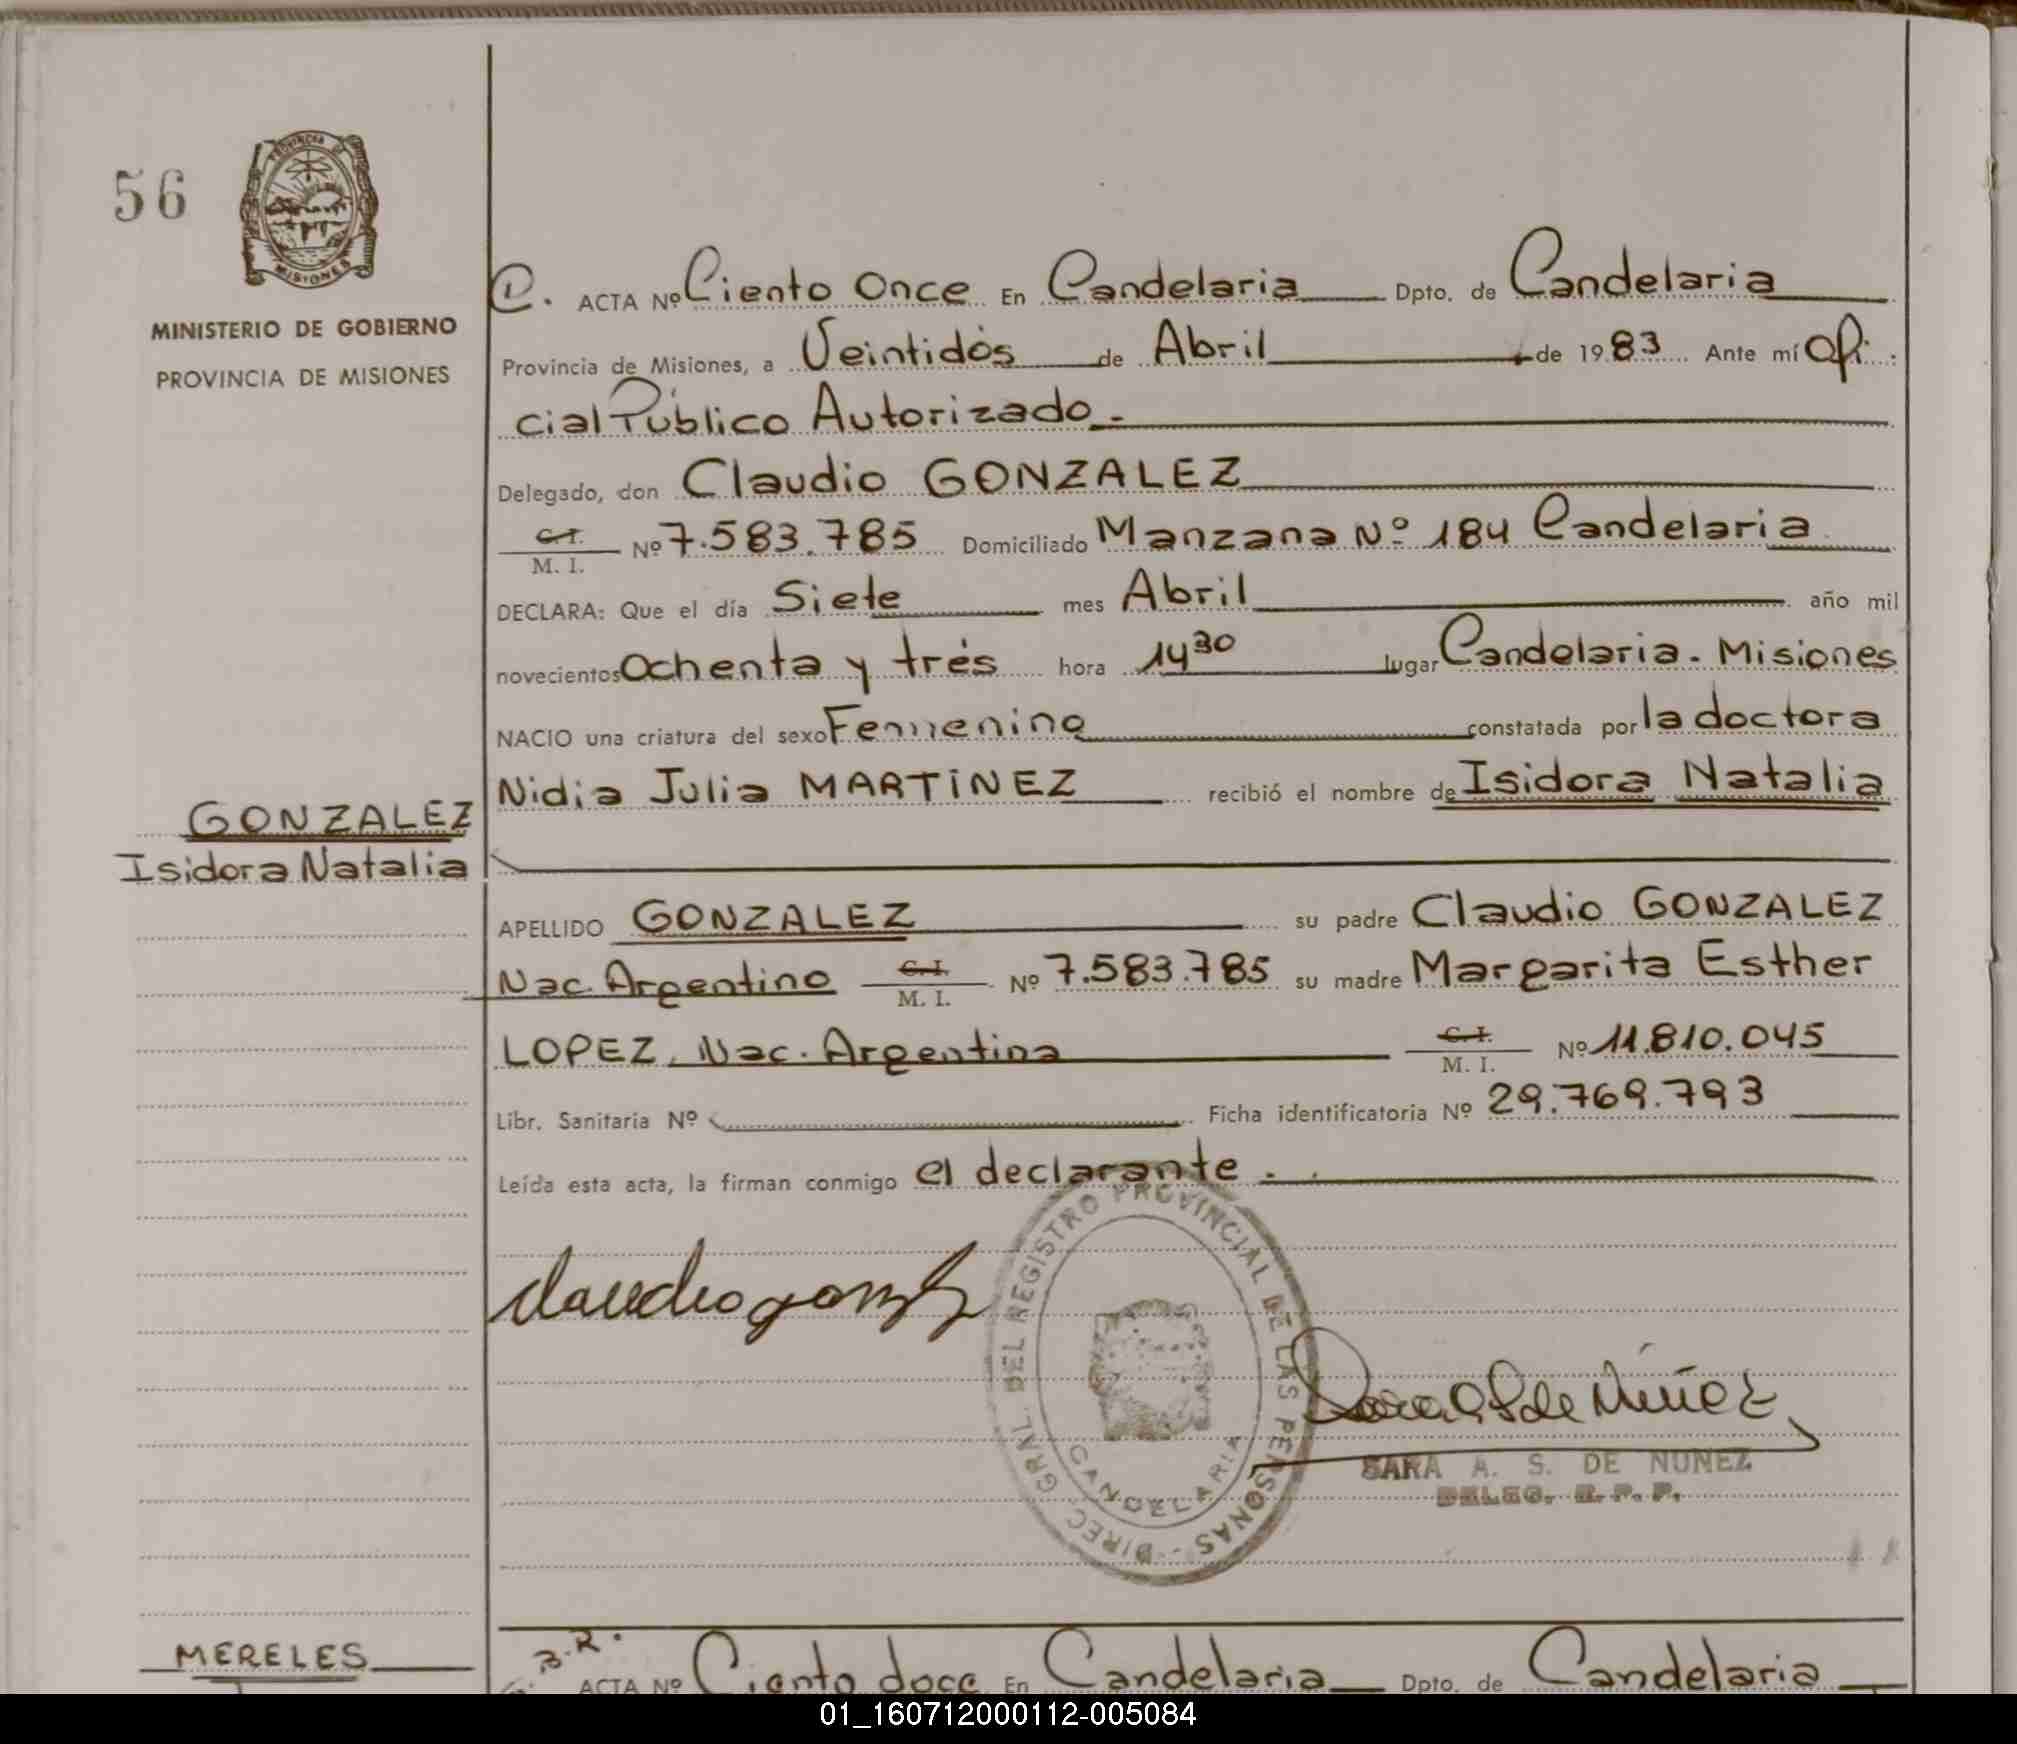 56
PROVINCIA DE
MISIONES
MINISTERIO DE GOBIERNO
PROVINCIA DE MISIONES
GONZALEZ
Isidora Natalia
ACTA Nº Ciento Once En Candelaria Dpto. de Candelaria
Provincia de Misiones, a Veintidós de Abril de 1983 Ante mí Ofi-
cial Público Autorizado.-
Delegado, don Claudio GONZALEZ
C.I.
M. I. Nº 7.583.785 Domiciliado Manzana Nº 184 Candelaria
DECLARA: Que el día Siete mes Abril año mil
novecientos Ochenta y trés hora 14 30 lugar Candelaria. Misiones
NACIO una criatura del sexo Femenino constatada por la doctora
Nidia Julia MARTINEZ recibió el nombre de Isidora Natalia
APELLIDO GONZALEZ su padre Claudio GONZALEZ
Nac. Argentino C.I. M. I. Nº 7.583.785 su madre Margarita Esther
LOPEZ, Nac. Argentina C.I. M. I. Nº 11.810.045
Libr. Sanitaria Nº Ficha identificatoria Nº 29.769.793
Leída esta acta, la firman conmigo el declarante.
DIREC. GRAL. DEL REGISTRO PROVINCIAL DE LAS PERSONAS
CANDELARIA
Sara A S de Núñez
SARA A. S. DE NUÑEZ
DELEG. R. P. P.
MERELES
B.R.
ACTA Nº Ciento doce En Candelaria Dpto. de Candelaria
01_160712000112-005084